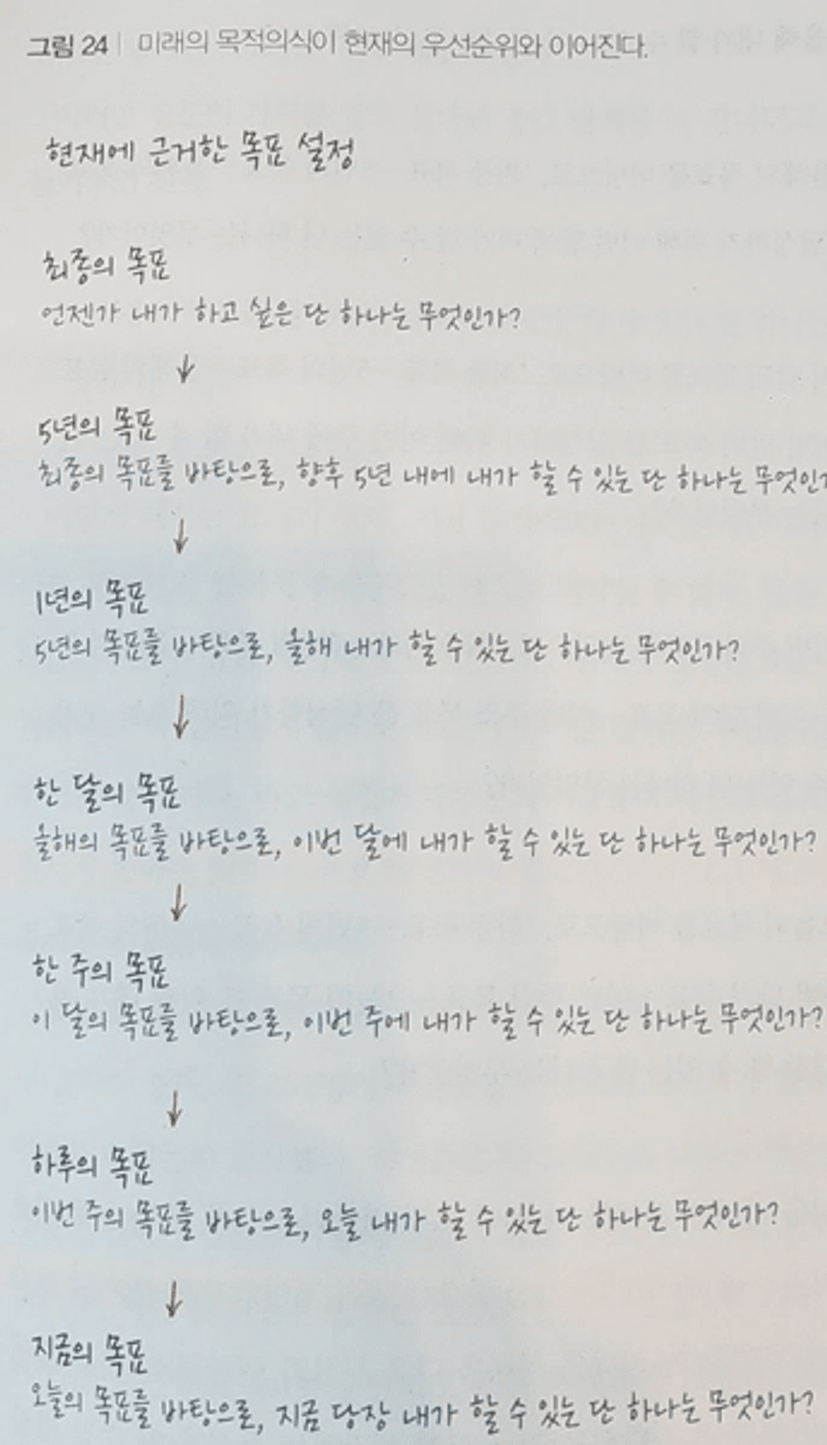 그림 24 | 미래의 목적의식이 현재의 우선순위와 이어진다.
현재에 근거한 목표 설정
최종의 목표
언젠가 내가 하고 싶은 단 하나는 무엇인가?
↓
5년의 목표
최종의 목표를 바탕으로, 향후 5년 내에 내가 할 수 있는 단 하나는 무엇인가
↓
1년의 목표
5년의 목표를 바탕으로, 올해 내가 할 수 있는 단 하나는 무엇인가?
↓
한 달의 목표
올해의 목표를 바탕으로, 이번 달에 내가 할 수 있는 단 하나는 무엇인가?
↓
한 주의 목표
이 달의 목표를 바탕으로, 이번 주에 내가 할 수 있는 단 하나는 무엇인가?
↓
하루의 목표
이번 주의 목표를 바탕으로, 오늘 내가 할 수 있는 단 하나는 무엇인가?
↓
지금의 목표
오늘의 목표를 바탕으로, 지금 당장 내가 할 수 있는 단 하나는 무엇인가?